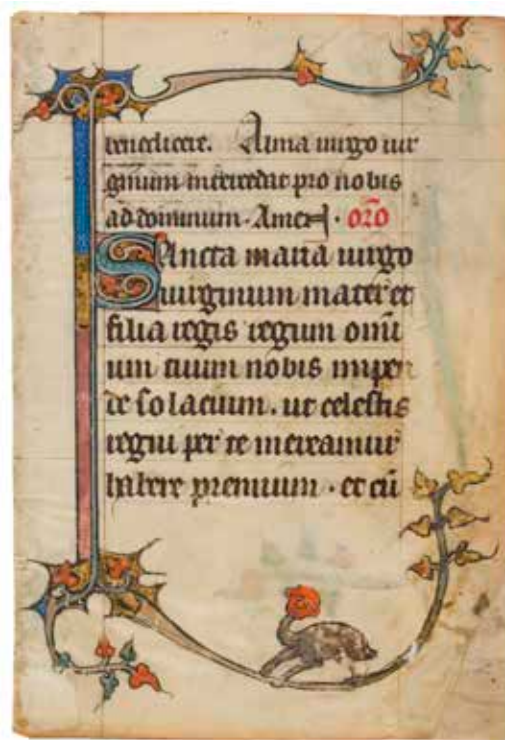 benedicere. Alma uirgo uir
ginum intercedat pro nobis
ad dominum. Amen. oro
Sancta maria uirgo
uirginum mater et
filia regis regum omi
um tuum nobis inpen
de solacium. ut celestis
regni per te mereamur
habere premium. et cu